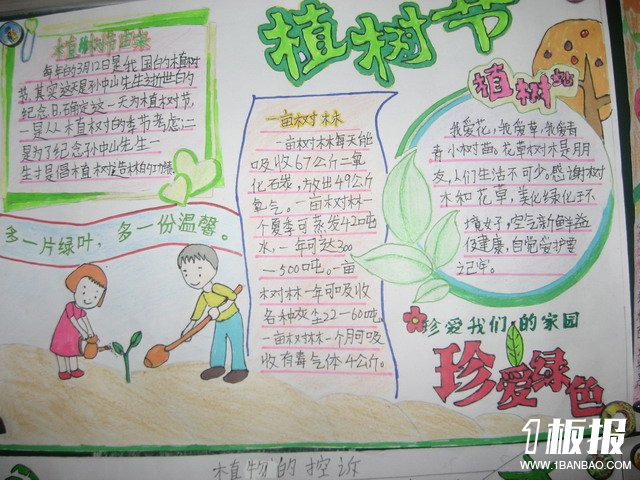 植树节
植树节由来
每年的3月12日是我国的植树
节,其实这天是孙中山先生逝世的
纪念日,确定这一天为植树节,
一是从植树的季节考虑;二
是为了纪念孙中山先生一
生才是倡植树造林的功绩
多一片绿叶,多一份温馨。
一亩树林
一亩树林每天能
吸收67公斤二氧
化石炭,放出49公斤
氧气。一亩树林一
个夏季可蒸发42吨
水,一年可达300
—500吨。一亩
树林一年可吸收
各种灰尘22—60吨,
一亩树林一个月可吸
收有毒气体4公斤。
植树
我爱花,我爱草,我爱青
青小树苗。花草树木是朋
友,人们生活不可少。感谢树
木和花草,美化绿化环
境好,空气新鲜益
促健康,自觉爱护要
记牢。
珍爱我们的家园
珍爱绿色
植物的控诉
1板报
WWW.1BANBAO.COM